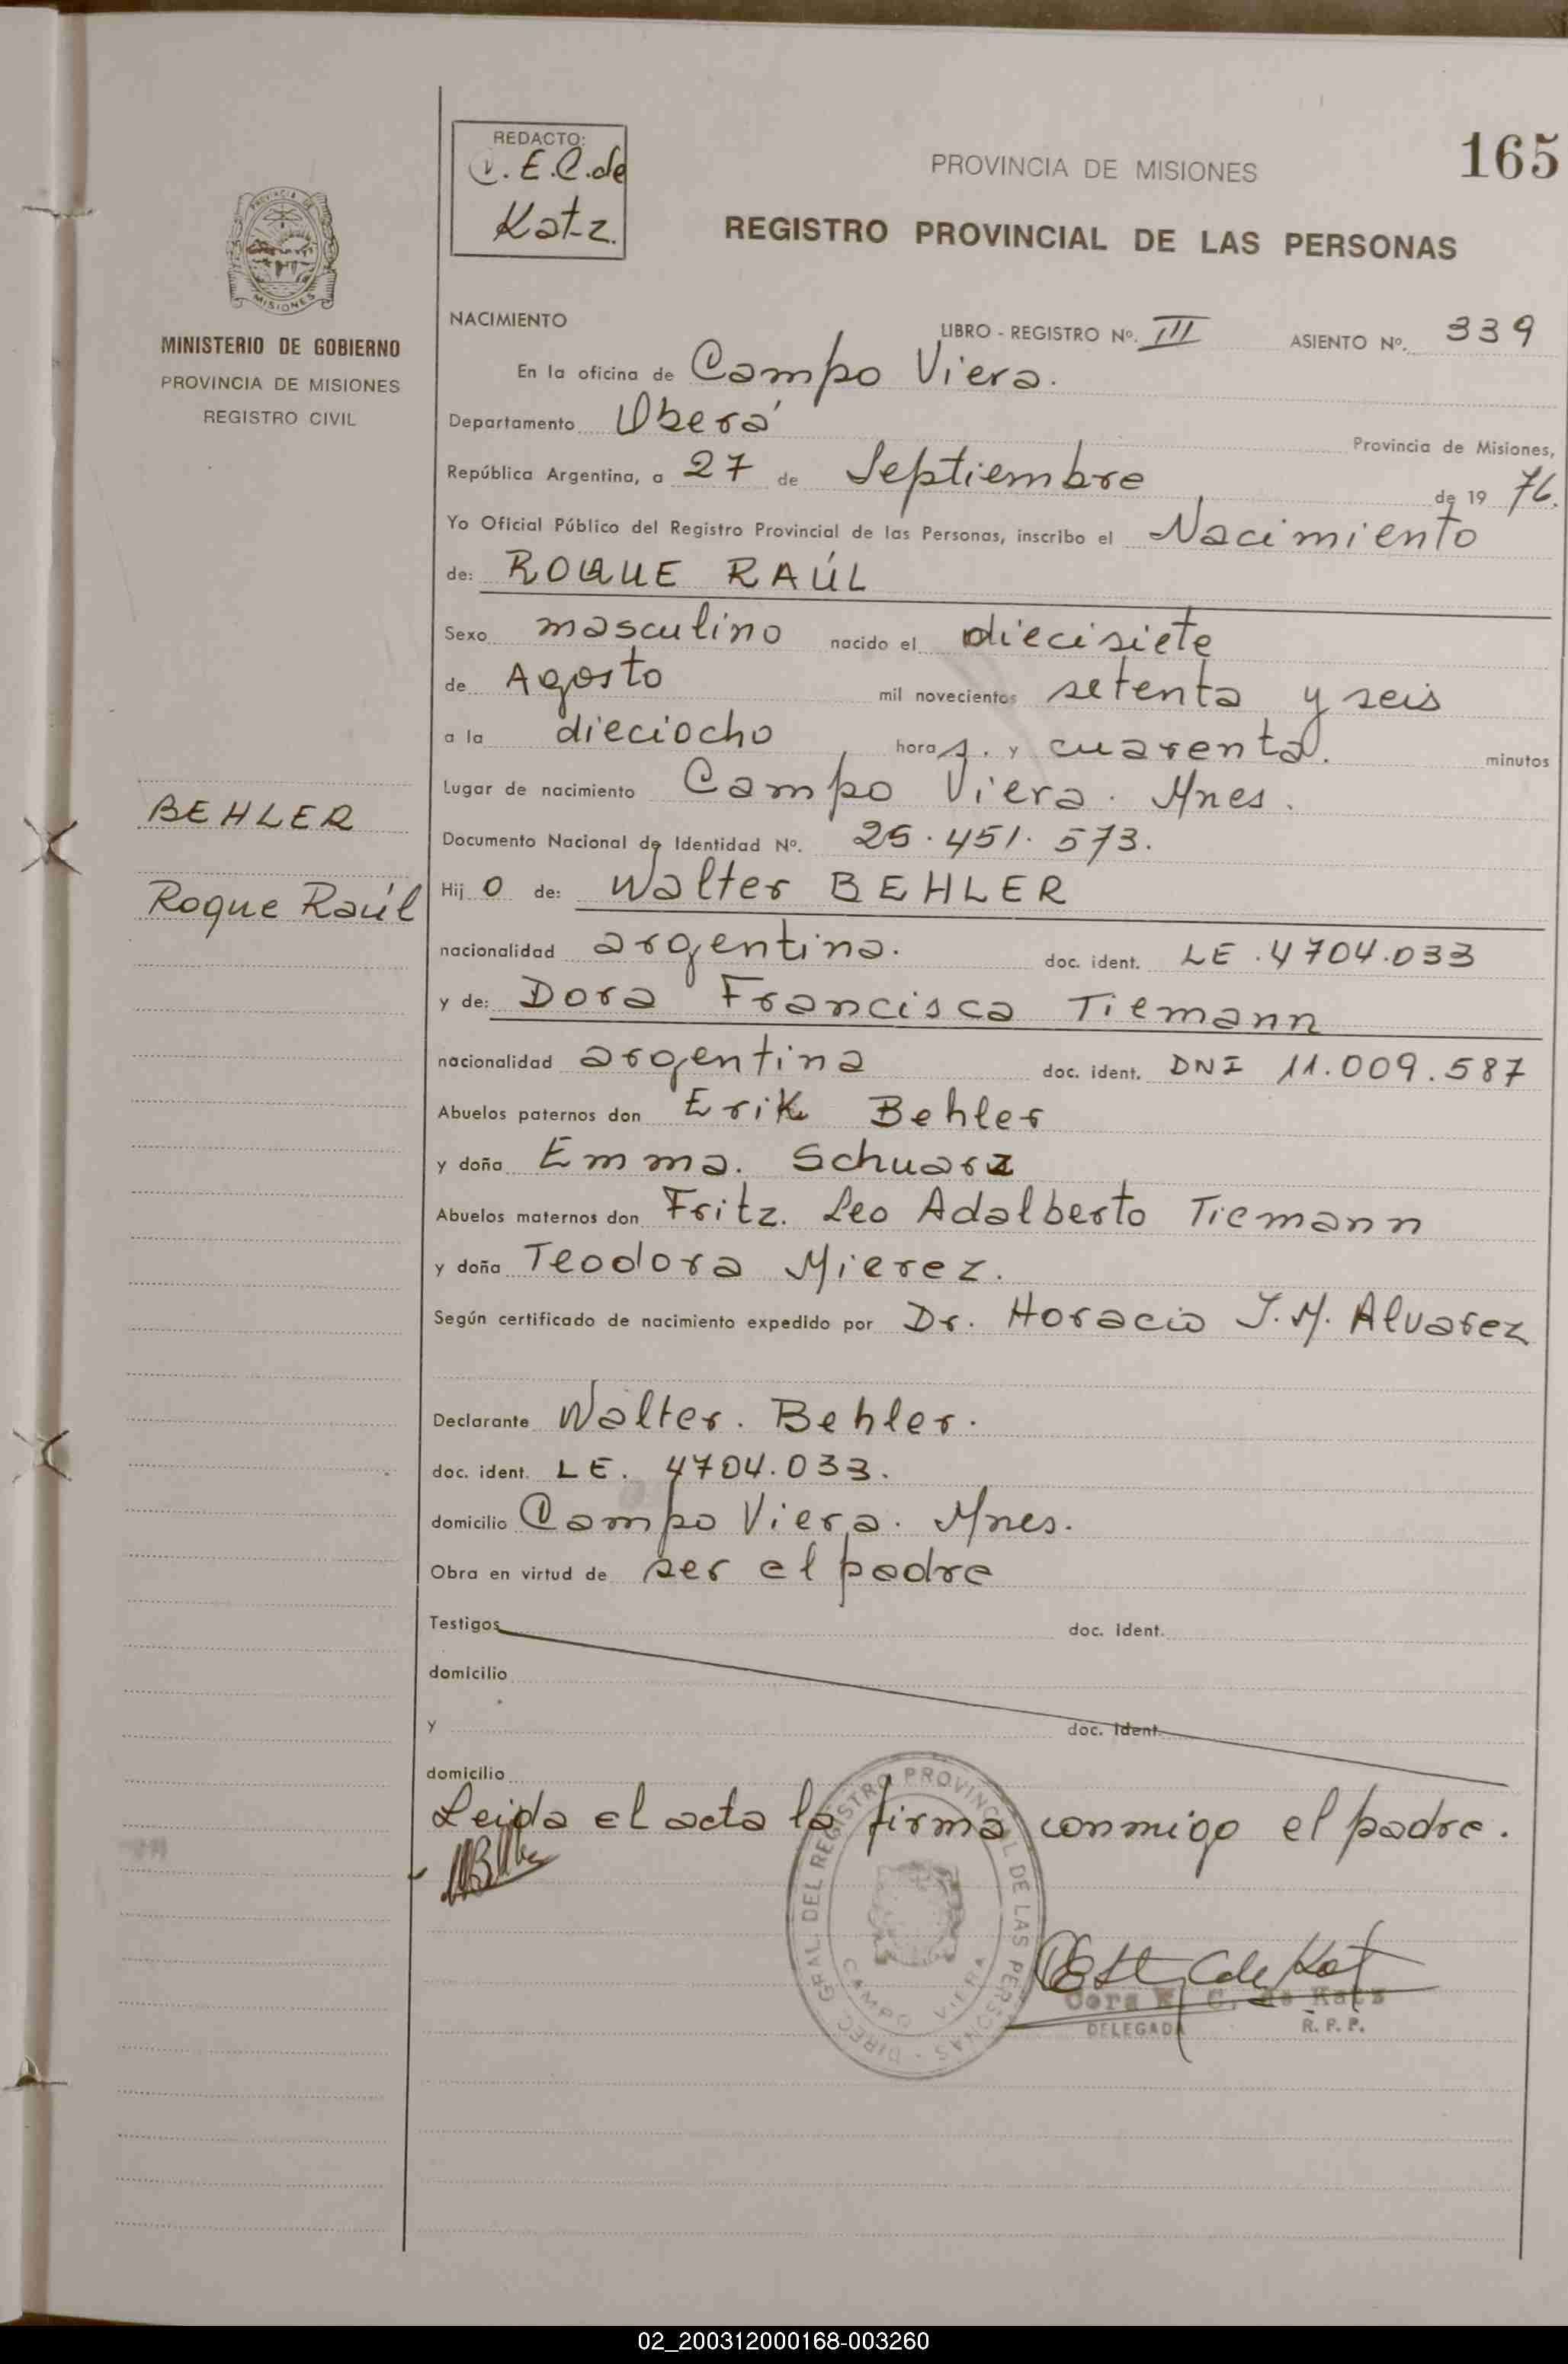 165
REDACTO:
C. E. C. de
Katz.
PROVINCIA DE MISIONES
REGISTRO PROVINCIAL DE LAS PERSONAS
MISIONES
MINISTERIO DE GOBIERNO
PROVINCIA DE MISIONES
REGISTRO CIVIL
BEHLER
Roque Raúl
NACIMIENTO LIBRO - REGISTRO Nº. III ASIENTO Nº. 339
En la oficina de Campo Viera.
Departamento Oberá Provincia de Misiones,
República Argentina, a 27 de Septiembre de 19 76.
Yo Oficial Público del Registro Provincial de las Personas, inscribo el Nacimiento
de: ROQUE RAÚL
Sexo masculino nacido el diecisiete
de Agosto mil novecientos setenta y seis
a la dieciocho hora s. y cuarenta. minutos
Lugar de nacimiento Campo Viera. Mnes.
Documento Nacional de Identidad Nº. 25.451.573.
Hij o de: Walter BEHLER
nacionalidad argentina. doc. ident. LE .4704.033
y de: Dora Francisca Tiemann
nacionalidad argentina doc. ident. DNI 11.009.587
Abuelos paternos don Erik Behler
y doña Emma. Schuarz
Abuelos maternos don Fritz. Leo Adalberto Tiemann
y doña Teodora Mierez.
Según certificado de nacimiento expedido por Dr. Horacio J. M. Alvarez
Declarante Walter. Behler.
doc. ident. LE. 4704.033.
domicilio Campo Viera. Mnes.
Obra en virtud de ser el padre
Testigos doc. ident.
domicilio
y doc. ident.
domicilio
Leida el acta la firma conmigo el padre.
DIREC. GRAL. DEL REGISTRO PROVINCIAL DE LAS PERSONAS
CAMPO VIERA
Cora E. C. de Katz
DELEGADA R. P. P.
02_200312000168-003260